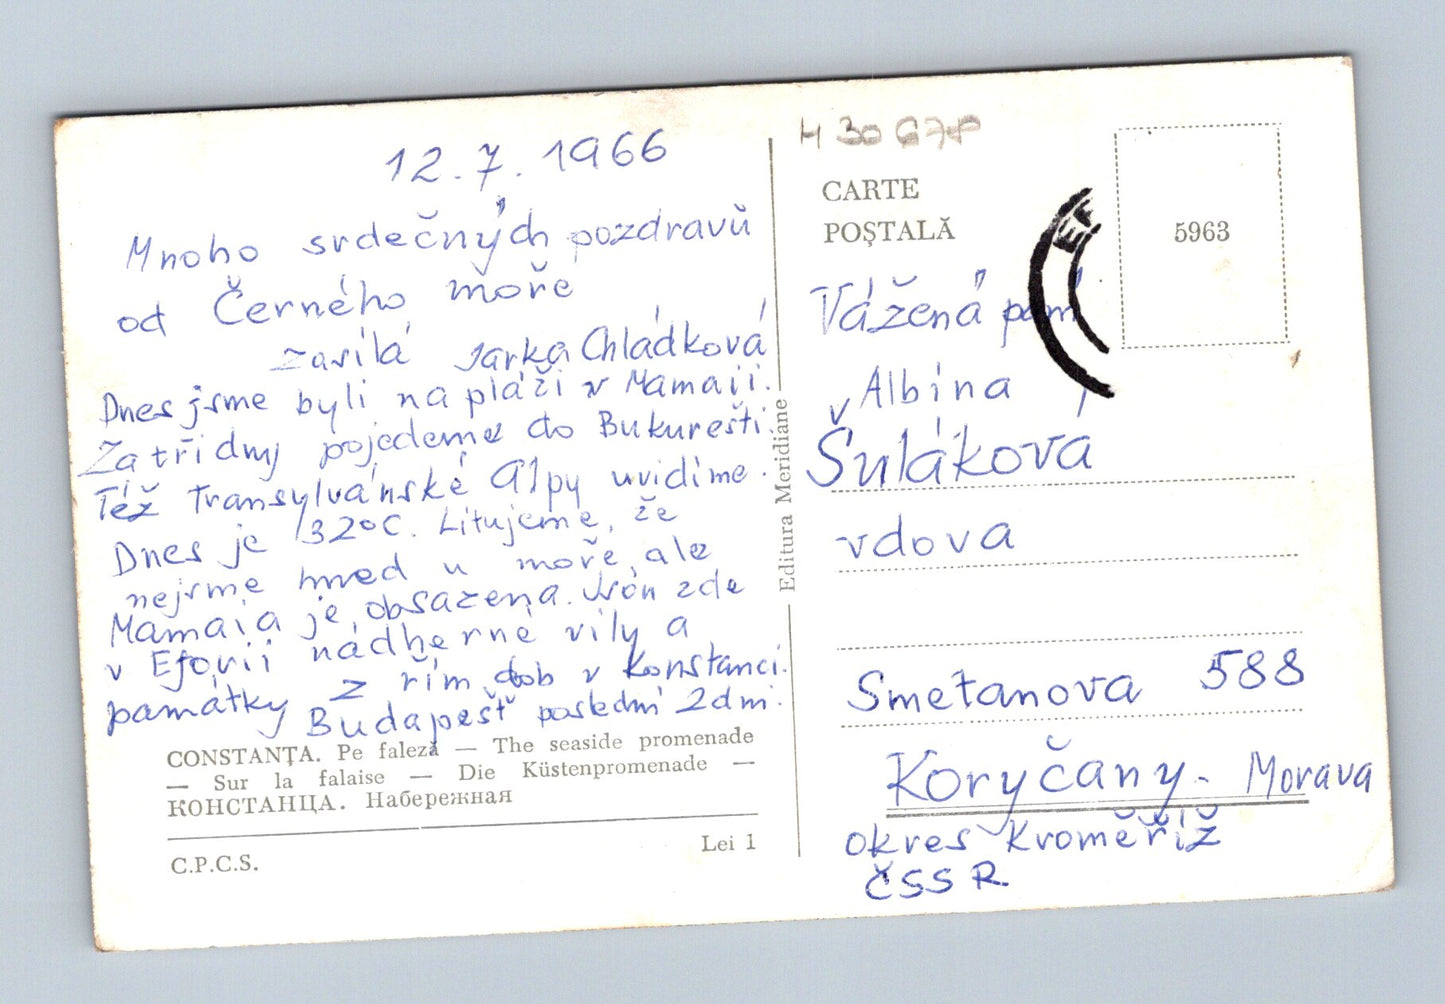 12.7.1966
Mnoho srdečných pozdravů
od Černého moře
zasílá Jarka Chládková
Dnes jsme byli na pláži v Mamaii.
Za tři dny pojedeme do Bukurešti.
Též Transylvánské Alpy uvidíme.
Dnes je 32°C. Litujeme, že
nejsme hned u moře, ale
Mamaia je obsazena. Jsou zde
v Eforii nádherné vily a
památky z řím. dob v Konstanci.
Budapešť poslední 2 dni.
CONSTANȚA. Pe faleză — The seaside promenade
— Sur la falaise — Die Küstenpromenade —
КОНСТАНЦА. Набережная
C.P.C.S.
Lei 1
Editura Meridiane
H 30 678
CARTE
POȘTALĂ
5963
EF
Vážená paní
Albína
Šuláková
vdova
Smetanova 588
Koryčany - Morava
okres Kroměříž
ČSSR